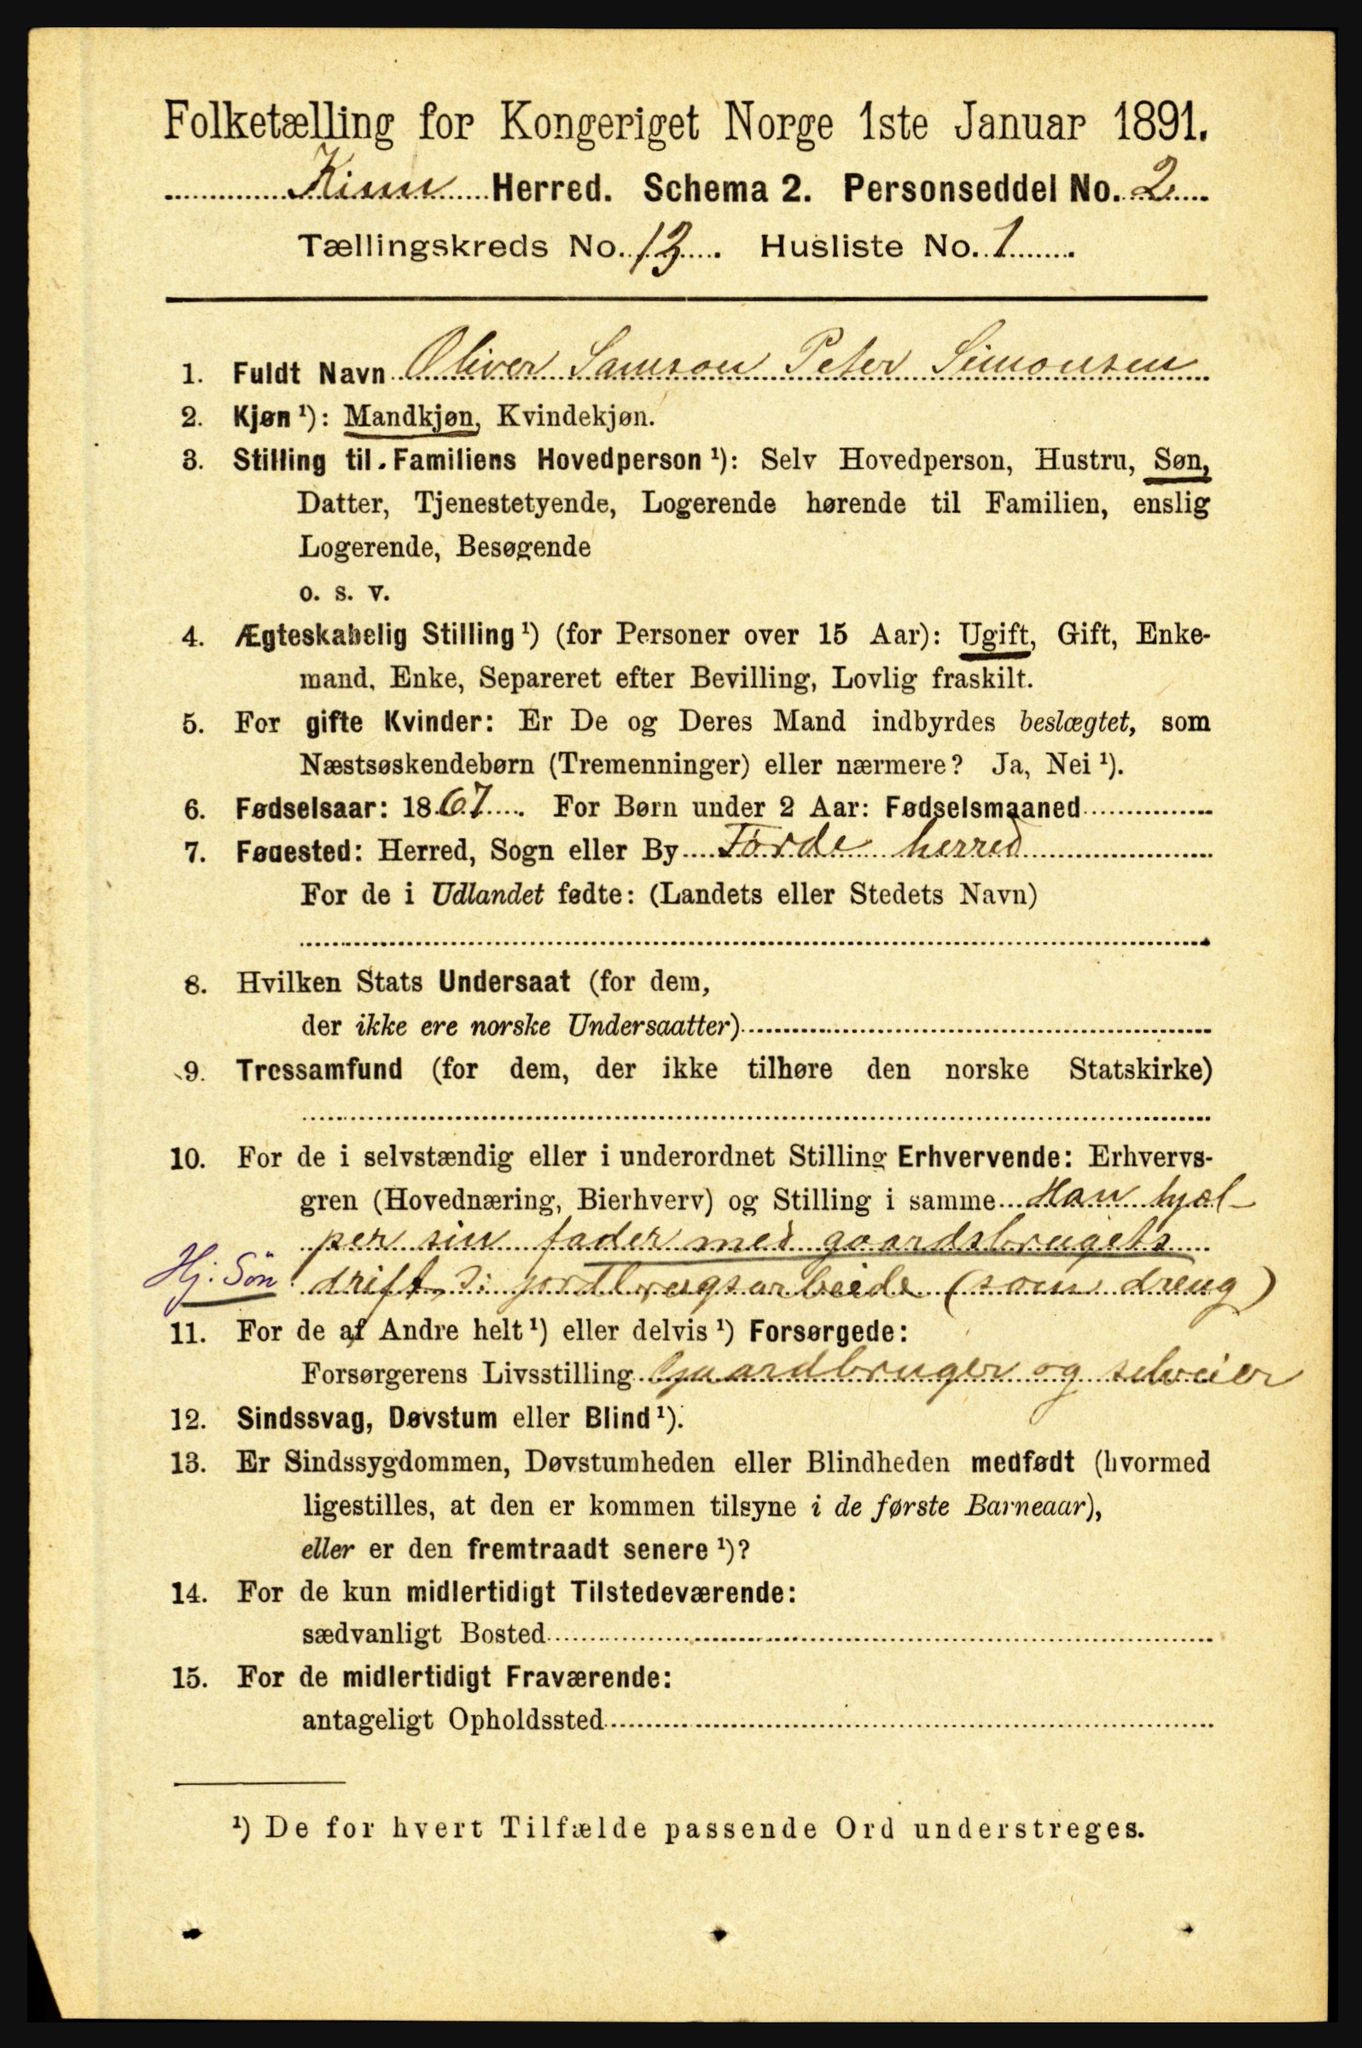 Folketælling for Kongeriget Norge 1ste Januar 1891.
Kinn Herred. Schema 2. Personseddel No. 2
Tællingskreds No. 13. Husliste No. 1
1. Fuldt Navn Oliver Samson Peter Simonsen
2. Kjøn ¹): Mandkjøn, Kvindekjøn.
3. Stilling til Familiens Hovedperson ¹): Selv Hovedperson, Hustru, Søn,
Datter, Tjenestetyende, Logerende hørende til Familien, enslig
Logerende, Besøgende
o. s. v.
4. Ægteskabelig Stilling ¹) (for Personer over 15 Aar): Ugift, Gift, Enke-
mand, Enke, Separeret efter Bevilling, Lovlig fraskilt.
5. For gifte Kvinder: Er De og Deres Mand indbyrdes beslægtet, som
Næstsøskendebørn (Tremenninger) eller nærmere? Ja, Nei ¹).
6. Fødselsaar: 1867. For Børn under 2 Aar: Fødselsmaaned
7. Fødested: Herred, Sogn eller By Førde herred
For de i Udlandet fødte: (Landets eller Stedets Navn)
8. Hvilken Stats Undersaat (for dem,
der ikke ere norske Undersaatter)
9. Trossamfund (for dem, der ikke tilhøre den norske Statskirke)
10. For de i selvstændig eller i underordnet Stilling Erhvervende: Erhvervs-
gren (Hovednæring, Bierhverv) og Stilling i samme Han hjæl-
per sin fader med gaardsbrugets
Hj. Søn drift, s: jordbrugsarbeide (som dreng)
11. For de af Andre helt ¹) eller delvis ¹) Forsørgede:
Forsørgerens Livsstilling Gaardbruger og selveier
12. Sindssvag, Døvstum eller Blind ¹).
13. Er Sindssygdommen, Døvstumheden eller Blindheden medfødt (hvormed
ligestilles, at den er kommen tilsyne i de første Barneaar),
eller er den fremtraadt senere ¹)?
14. For de kun midlertidigt Tilstedeværende:
sædvanligt Bosted
15. For de midlertidigt Fraværende:
antageligt Opholdssted
¹) De for hvert Tilfælde passende Ord understreges.